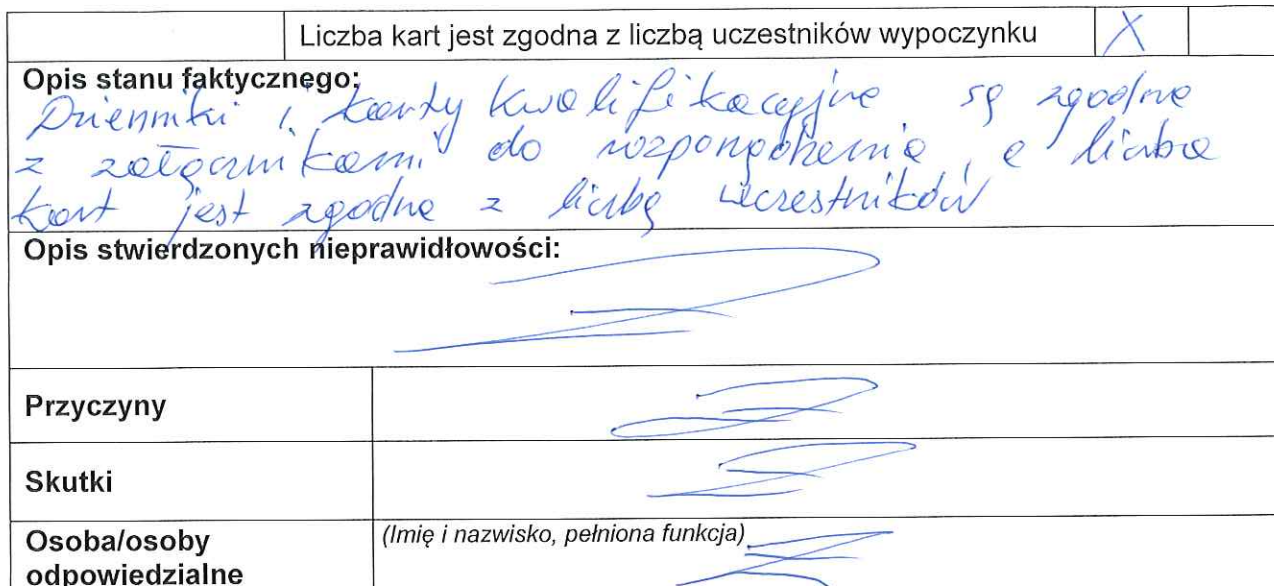 Liczba kart jest zgodna z liczbą uczestników wypoczynku X
Opis stanu faktycznego:
Dzienniki i karty kwalifikacyjne są zgodne
z załącznikami do rozporządzenia, a liczba
kart jest zgodna z liczbą uczestników
Opis stwierdzonych nieprawidłowości:
Przyczyny
Skutki
Osoba/osoby
odpowiedzialne
(Imię i nazwisko, pełniona funkcja)